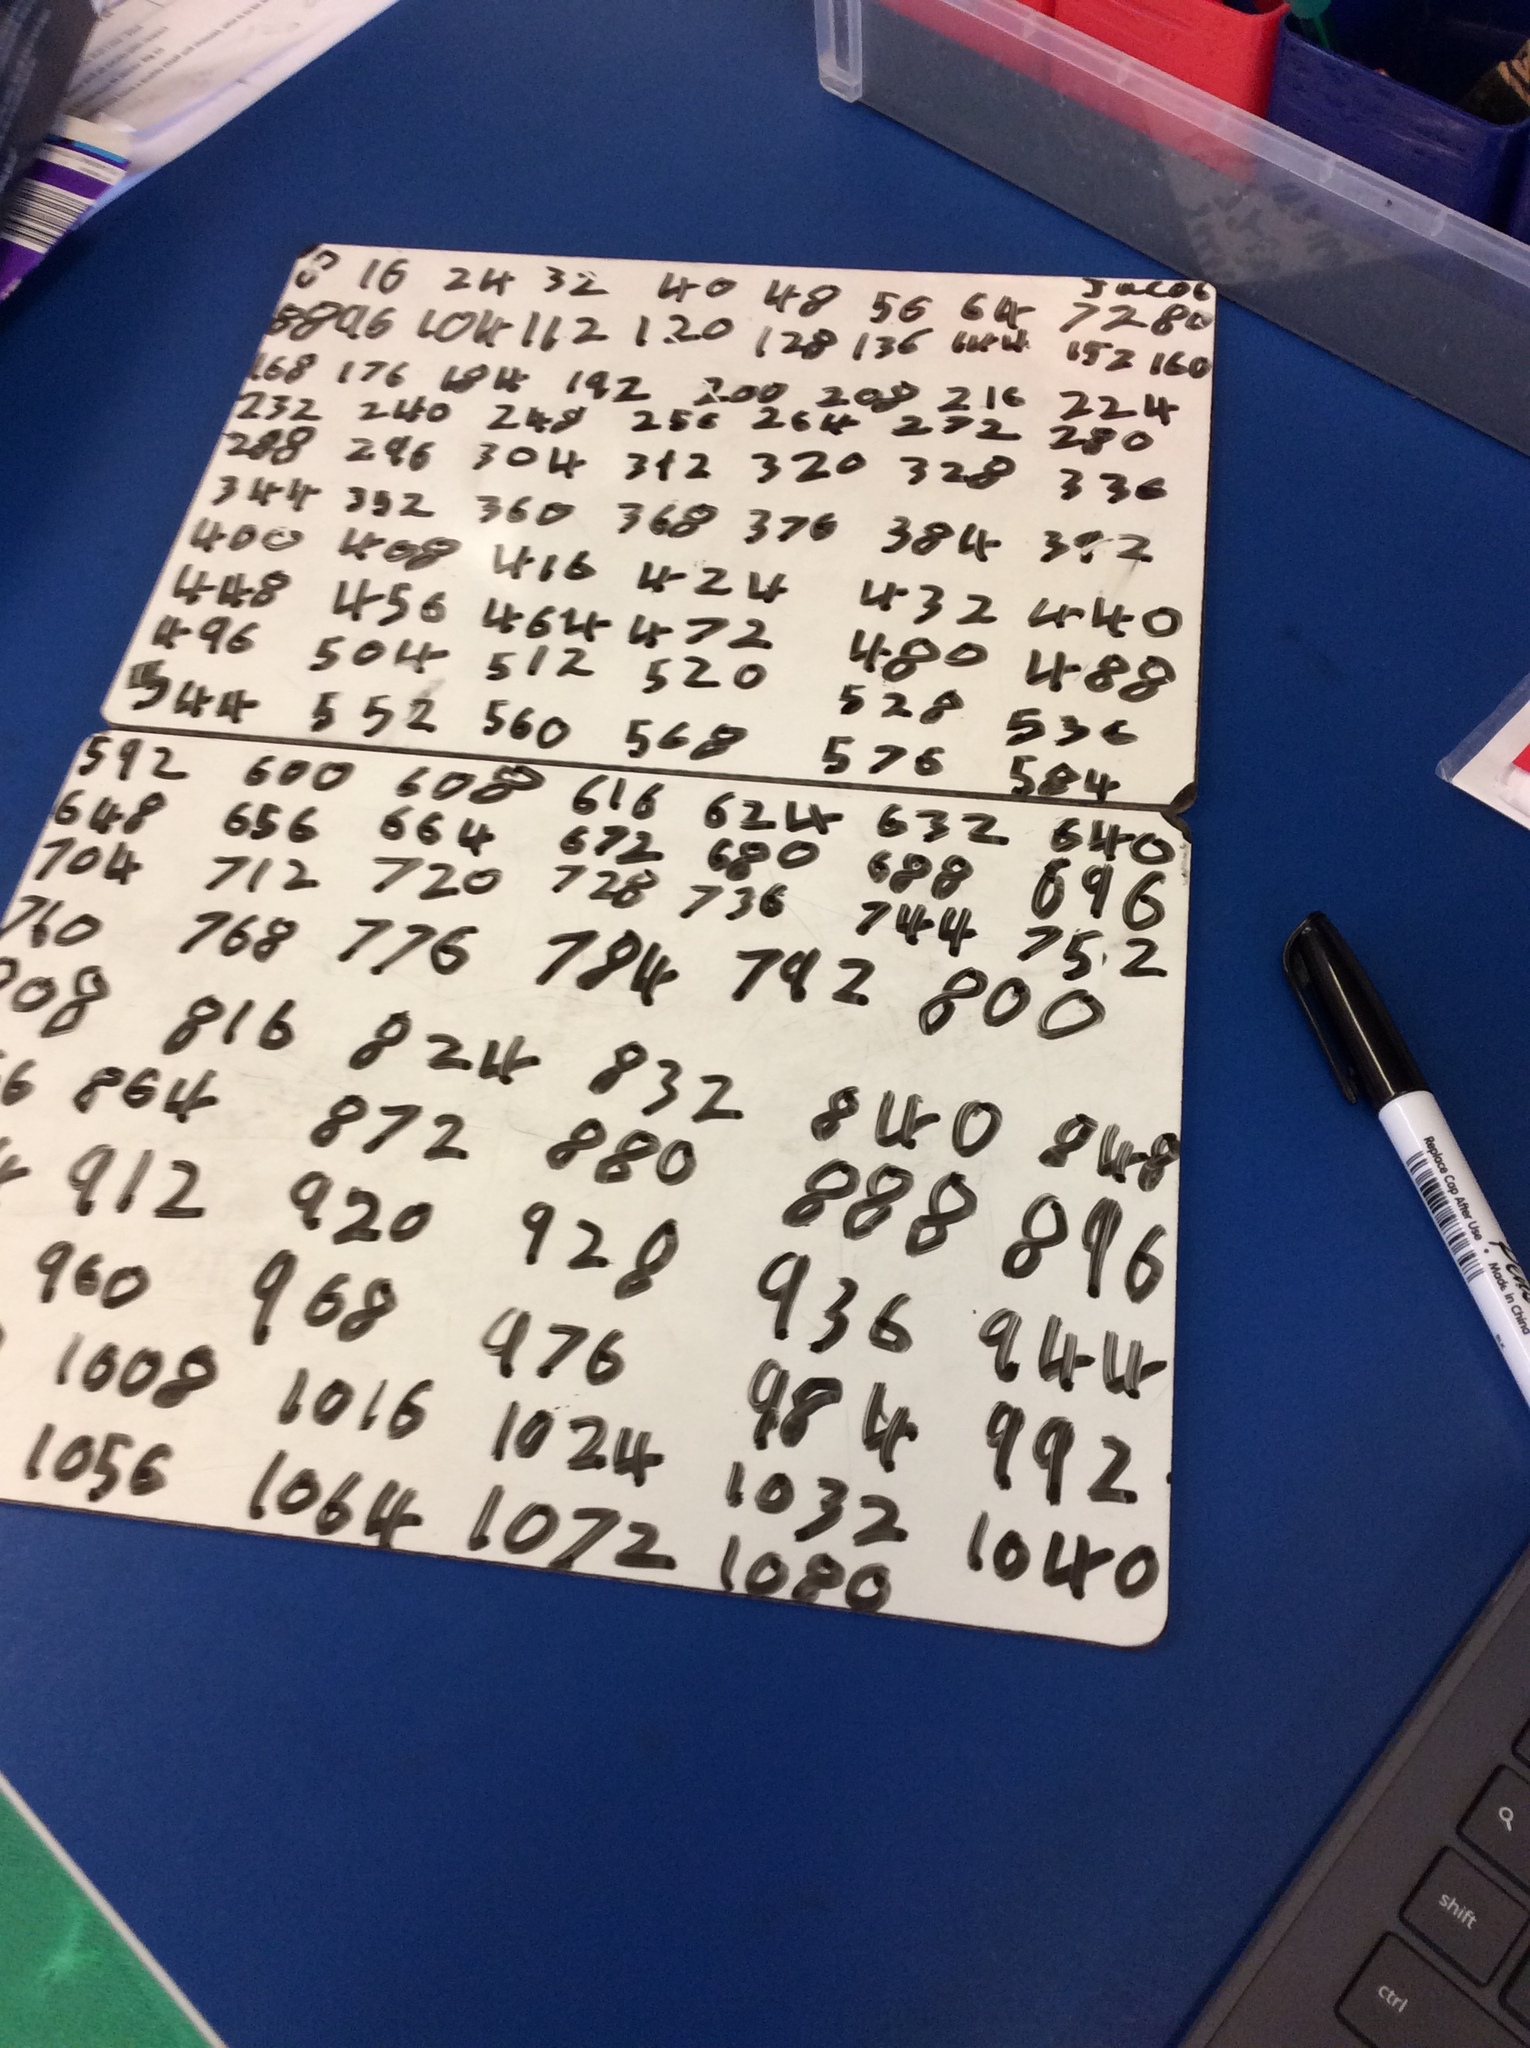 8 16 24 32 40 48 56 64 72 80
Jacob
88 96 104 112 120 128 136 144 152 160
168 176 184 192 200 208 216 224
232 240 248 256 264 272 280
288 296 304 312 320 328 336
344 352 360 368 376 384 392
400 408 416 424 432 440
448 456 464 472 480 488
496 504 512 520 528 536
544 552 560 568 576 584
592 600 608 616 624 632 640
648 656 664 672 680 688 696
704 712 720 728 736 744 752
760 768 776 784 792 800
808 816 824 832 840 848
6 864 872 880 888 896
4 912 920 928 936 944
960 968 976 984 992
1008 1016 1024 1032 1040
1056 1064 1072 1080
Replace Cap After Use • Made in China
shift
ctrl